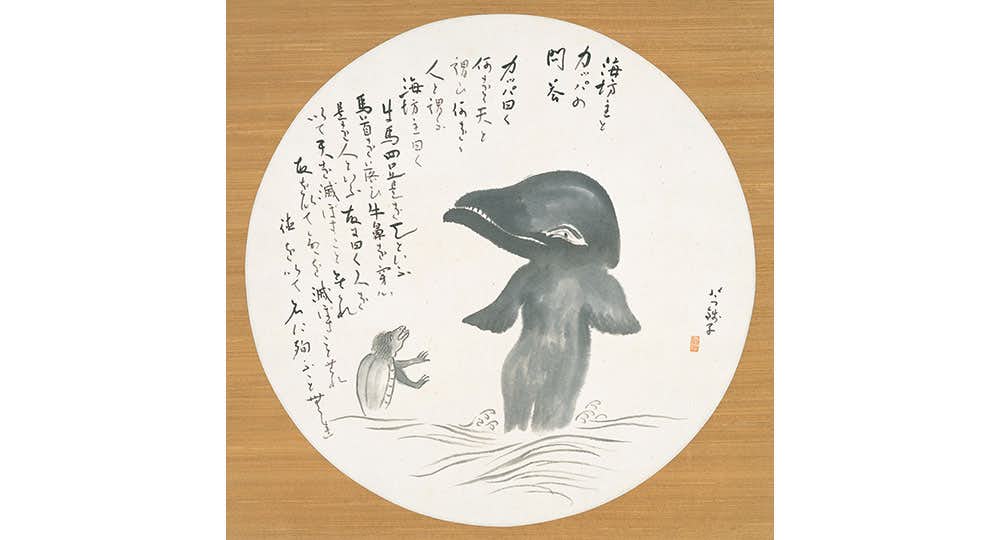 海坊主と
カッパの
問答
カッパ曰く
何を天と
謂ひ何を
人と謂ふ
海坊主曰く
牛馬四足是を天といふ
馬首を落ひ牛鼻を穿つ
是を人といふ故に曰く人を
以て天を滅ぼすこと無れ
故を以て命を滅ぼすこと無れ
徳を以て名に殉ふこと無れ
芋銭子